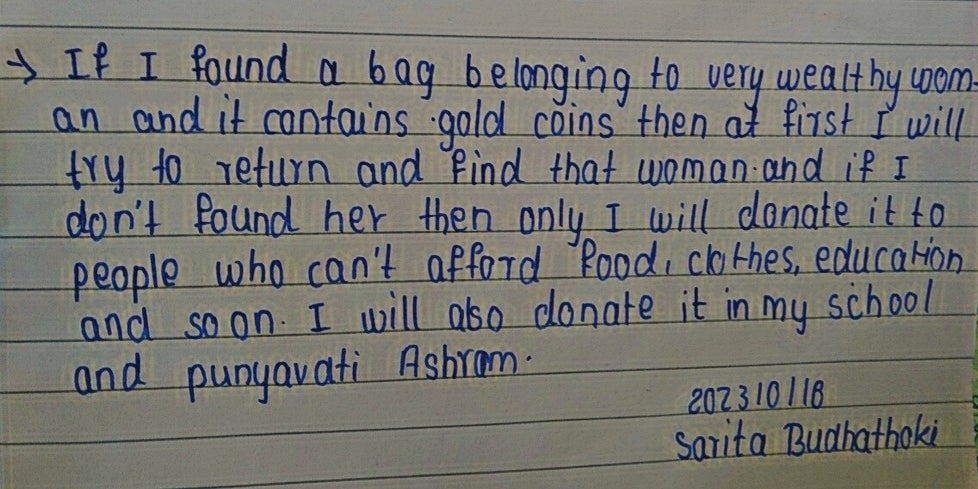 → If I found a bag belonging to very wealthy wom-
an and it contains gold coins then at first I will
try to return and find that woman. and if I
don't found her then only I will donate it to
people who can't afford food, clothes, education
and so on. I will also donate it in my school
and punyavati Ashram.
202310118
Sarita Budhathoki